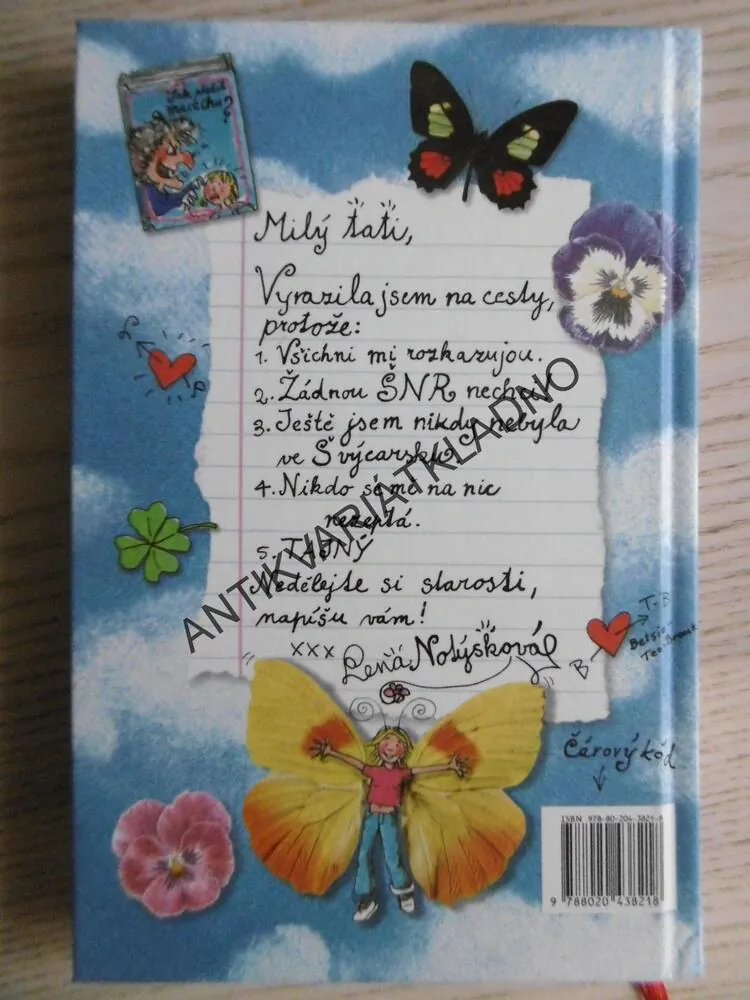 Jak zlobit
macechu?
Milý tati,
Vyrazila jsem na cesty,
protože:
1. Všichni mi rozkazujou.
2. Žádnou ŠNR nechci!
3. Ještě jsem nikdy nebyla
ve Švýcarsku.
4. Nikdo se mě na nic
nezeptá.
5. TAJNÝ
Nedělejte si starosti,
napíšu vám!
xxx Lena Nolýsková
ANTIKVARIATKLADNO
T-B
B
Čárový kód
ISBN 978-80-204-3821-8
9 788020 438218